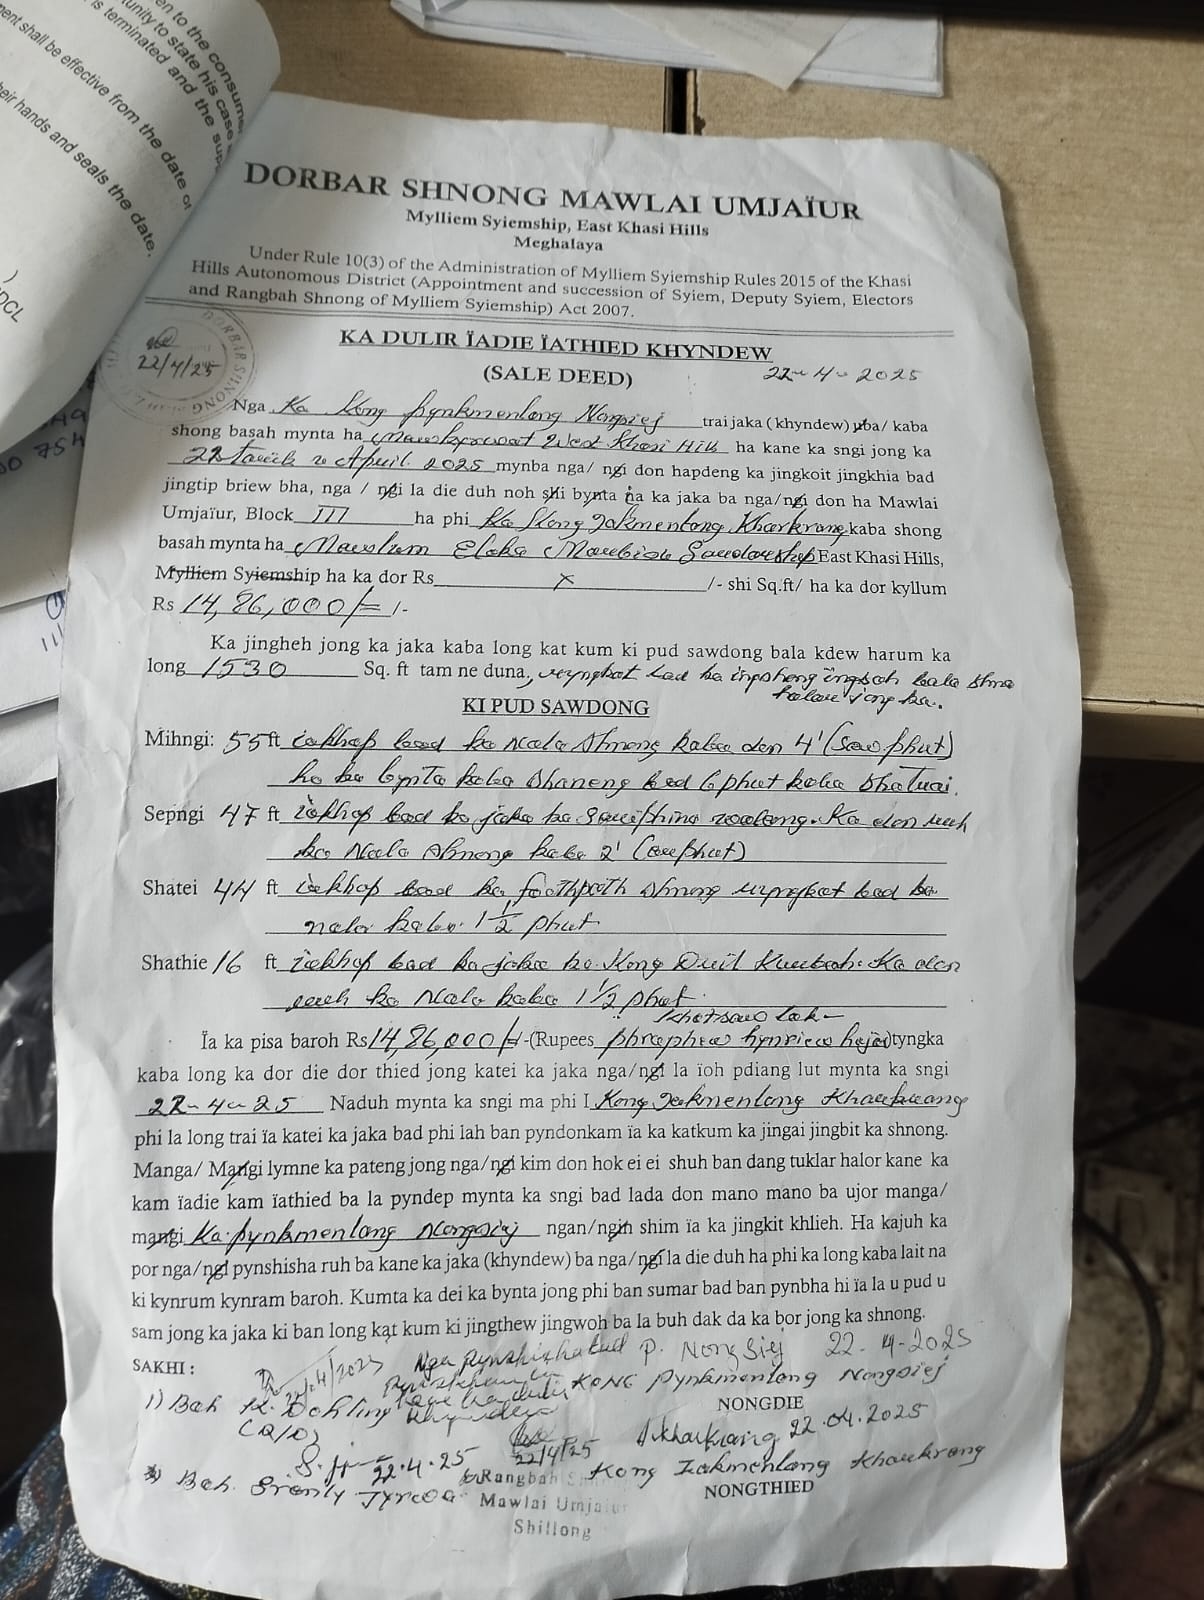 en to the consume
unity to state his case
is terminated and the sup
ment shall be effective from the date of
heir hands and seals the date.
)
PDCL
DORBAR SHNONG MAWLAI UMJAÏUR
Mylliem Syiemship, East Khasi Hills
Meghalaya
Under Rule 10(3) of the Administration of Mylliem Syiemship Rules 2015 of the Khasi
Hills Autonomous District (Appointment and succession of Syiem, Deputy Syiem, Electors
and Rangbah Shnong of Mylliem Syiemship) Act 2007.
KA DULIR ÏADIE ÏATHIED KHYNDEW
(SALE DEED)
22-4-2025
DORBAR SHNONG
22/4/25
Nga Ka Kong Pynkmenlang Nongsiej trai jaka (khyndew) uba/ kaba
shong basah mynta ha West Khasi Hills ha kane ka sngi jong ka
22 April 2025 mynba nga/ ngi don hapdeng ka jingkoit jingkhia bad
jingtip briew bha, nga / ngi la die duh noh shi bynta na ka jaka ba nga/ngi don ha Mawlai
Umjaïur, Block III ha phi Ka Kong Iakmenlang Kharkrang kaba shong
basah mynta ha Elaka East Khasi Hills,
Mylliem Syiemship ha ka dor Rs x /- shi Sq.ft/ ha ka dor kyllum
Rs 14,86,000/= /-
Ka jingheh jong ka jaka kaba long kat kum ki pud sawdong bala kdew harum ka
long 1530 Sq. ft tam ne duna, ryngkat bad ka ïingsheng ïingsah bala shna
halor jong ka.
KI PUD SAWDONG
Mihngi: 55 ft ïakhap bad ka Nala Shnong kaba don 4' (Saw phut)
ha ka bynta kaba Shaneng bad 6 phut kaba Shatuai.
Sepngi 47 ft ïakhap bad ka jaka ka Ka don ruh
ka Nala Shnong kaba 2' (ar phut)
Shatei 44 ft ïakhap bad ka footpath Shnong ryngkat bad ka
nala kaba 1 1/2 phut
Shathie 16 ft ïakhap bad ka jaka ka Kong Ka don
ruh ka Nala kaba 1 1/2 phut.
Khatsaw lak
Ïa ka pisa baroh Rs 14,86,000/= /-(Rupees phraphew hynriew hajar) tyngka
kaba long ka dor die dor thied jong katei ka jaka nga/ngi la ïoh pdiang lut mynta ka sngi
22-4-25 Naduh mynta ka sngi ma phi I Kong Iakmenlang Kharkrang
phi la long trai ïa katei ka jaka bad phi lah ban pyndonkam ïa ka katkum ka jingai jingbit ka shnong.
Manga/ Mangi lymne ka pateng jong nga/ngi kim don hok ei ei shuh ban dang tuklar halor kane ka
kam ïadie kam ïathied ba la pyndep mynta ka sngi bad lada don mano mano ba ujor manga/
mangi Ka Pynkmenlang Nongsiej ngan/ngin shim ïa ka jingkit khlieh. Ha kajuh ka
por nga/ngi pynshisha ruh ba kane ka jaka (khyndew) ba nga/ngi la die duh ha phi ka long kaba lait na
ki kynrum kynram baroh. Kumta ka dei ka bynta jong phi ban sumar bad ban pynbha hi ïa la u pud u
sam jong ka jaka ki ban long kat kum ki jingthew jingwoh ba la buh dak da ka bor jong ka shnong.
SAKHI :
22/4/2025
Nga Pynshisha P. Nongsiej 22-4-2025
Kong Pynkmenlang Nongsiej
NONGDIE
1) Bah K. Dohling
22/4/25
I. Kharkrang 22.04.2025
22.4.25
Kong Iakmenlang Kharkrang
NONGTHIED
2) Bah
Rangbah
Mawlai Umjaiur
Shillong